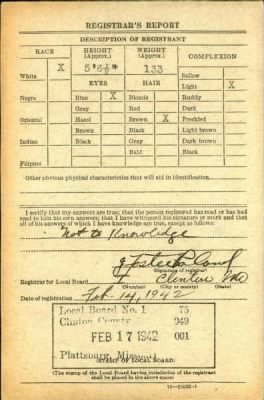 REGISTRAR'S REPORT
DESCRIPTION OF REGISTRANT
RACE HEIGHT (Approx.) WEIGHT (Approx.) COMPLEXION
X 133
White Sallow
EYES HAIR Light X
Negro Blue X Blonde Ruddy
Gray Red Dark
Oriental Hazel Brown X Freckled
Brown Black Light brown
Indian Black Gray Dark brown
Bald Black
Filipino
Other obvious physical characteristics that will aid in identification
I certify that my answers are true; that the person registered has read or has had
read to him his own answers; that I have witnessed his signature or mark and that
all of his answers of which I have knowledge are true, except as follows:
Not to Knowledge
(Signature of registrar)
Registrar for Local Board Clinton Mo
(Number) (City or county) (State)
Date of registration Feb. 14, 1942
Local Board No. 1 75
Clinton County 049
FEB 17 1942 001
Plattsburg, Missouri
(STAMP OF LOCAL BOARD)
(The stamp of the Local Board having jurisdiction of the registrant
shall be placed in the above space.)